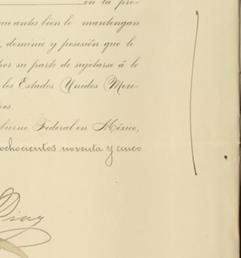 en la pro-
que antes bien le mantengan
, dominio y posesión que le
por su parte de sujetarse á lo
los Estados Unidos Mex-
nos
bierno Federal en México,
ochocientos noventa y cinco
Diaz